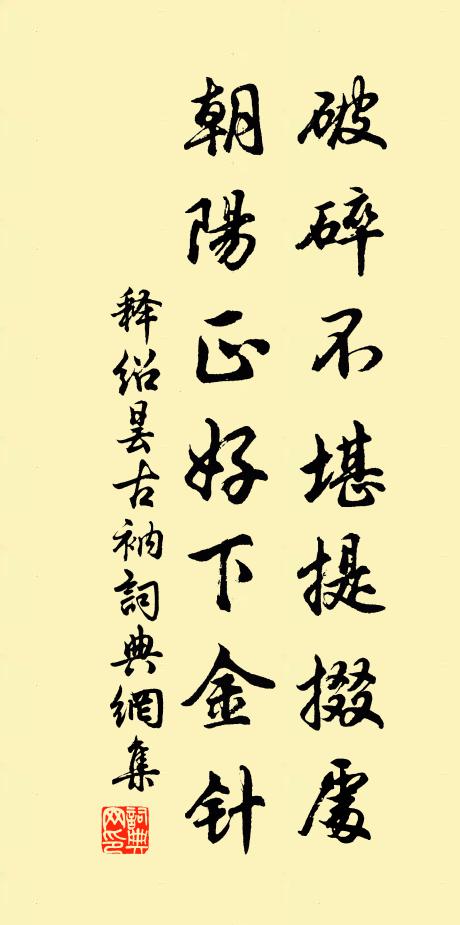 破碎不堪提掇處
朝陽正好下金针
释紹曇古衲詞典網集
詞典網印